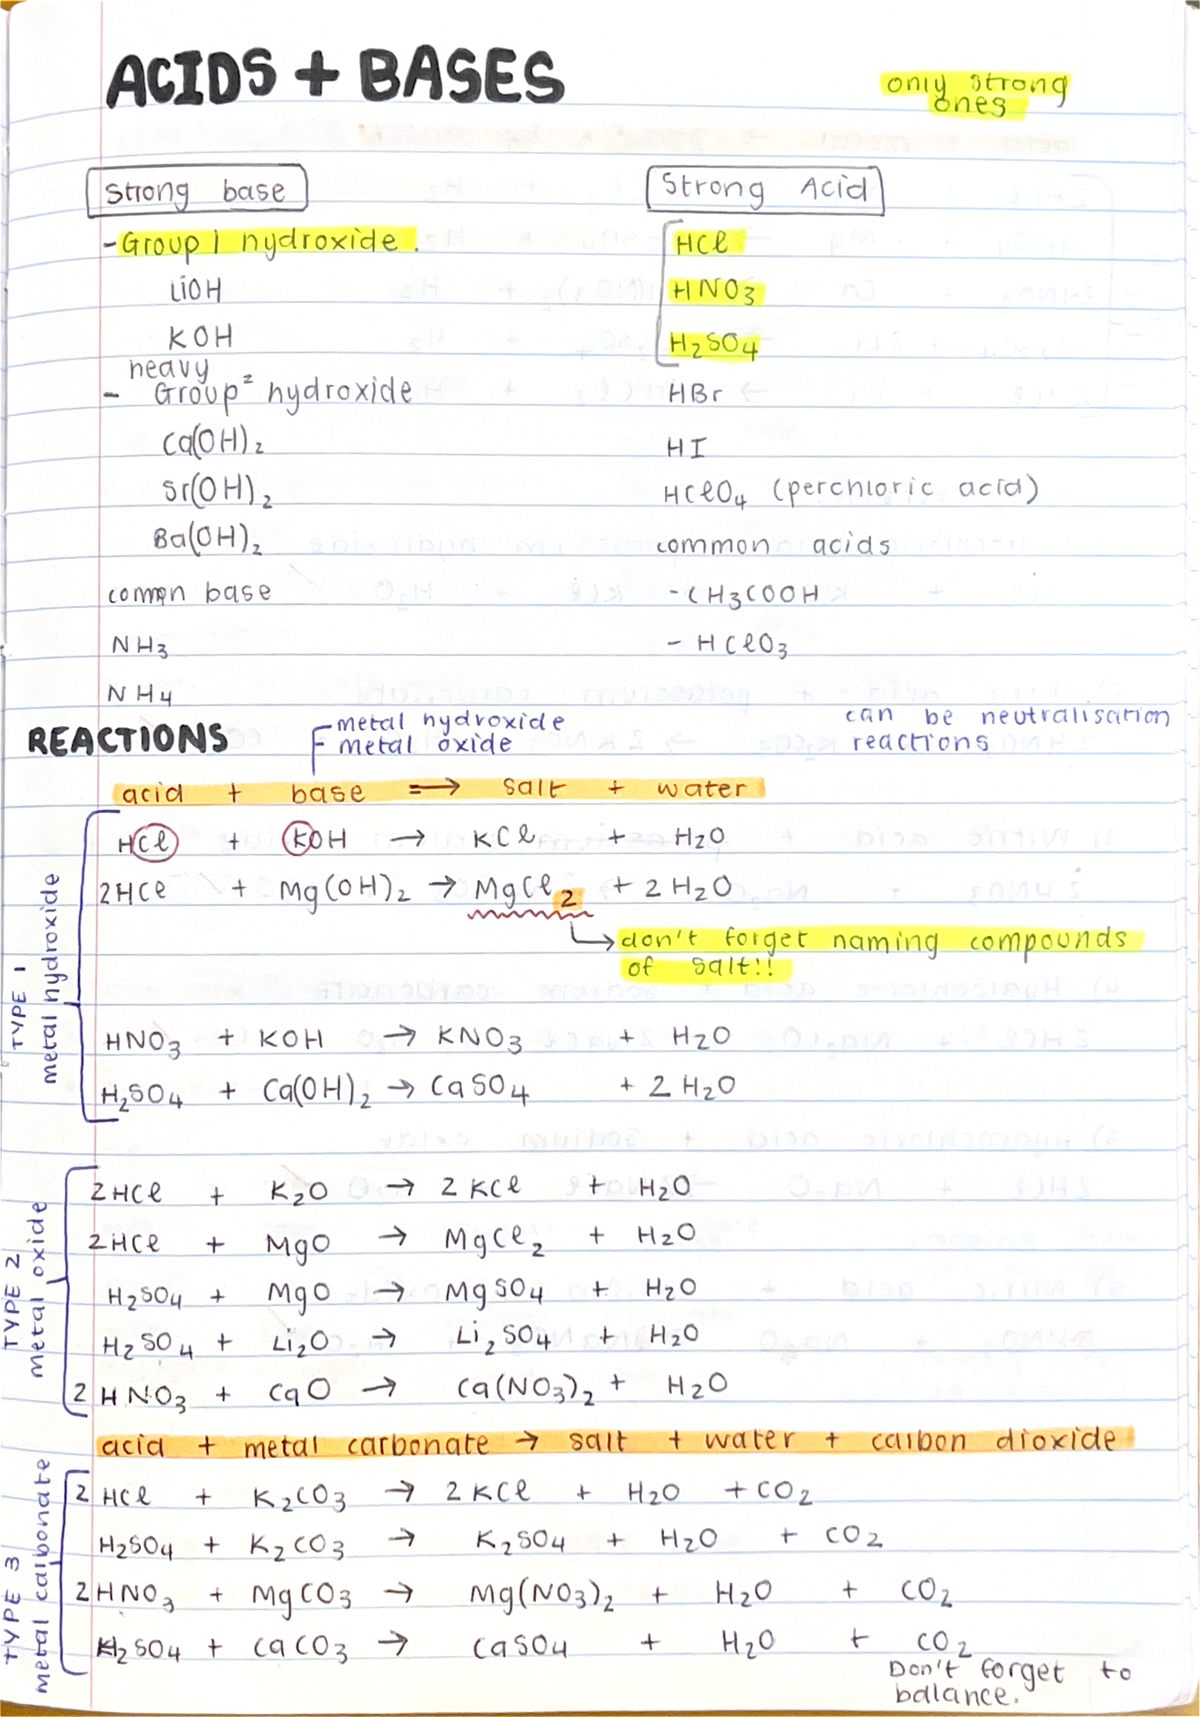 ACIDS + BASES
only strong
ones
strong base
Strong Acid
- Group 1 hydroxide.
HCl
LiOH
HNO3
KOH
H2SO4
heavy
- Group 2 hydroxide
HBr
Ca(OH)2
HI
Sr(OH)2
HClO4 (perchloric acid)
Ba(OH)2
common acids
common base
- CH3COOH
NH3
- HClO3
NH4
REACTIONS
metal hydroxide
metal oxide
can be neutralisation
reactions
acid + base ⟹ salt + water
TYPE 1
metal hydroxide
HCl + KOH → KCl + H2O
2HCl + Mg(OH)2 → MgCl2 + 2H2O
↳ don't forget naming compounds
of salt!!
HNO3 + KOH → KNO3 + H2O
H2SO4 + Ca(OH)2 → CaSO4 + 2H2O
TYPE 2
metal oxide
2HCl + K2O → 2KCl + H2O
2HCl + MgO → MgCl2 + H2O
H2SO4 + MgO → MgSO4 + H2O
H2SO4 + Li2O → Li2SO4 + H2O
2HNO3 + CaO → Ca(NO3)2 + H2O
acid + metal carbonate → salt + water + carbon dioxide
TYPE 3
metal carbonate
2HCl + K2CO3 → 2KCl + H2O + CO2
H2SO4 + K2CO3 → K2SO4 + H2O + CO2
2HNO3 + MgCO3 → Mg(NO3)2 + H2O + CO2
H2SO4 + CaCO3 → CaSO4 + H2O + CO2
Don't forget to
balance.